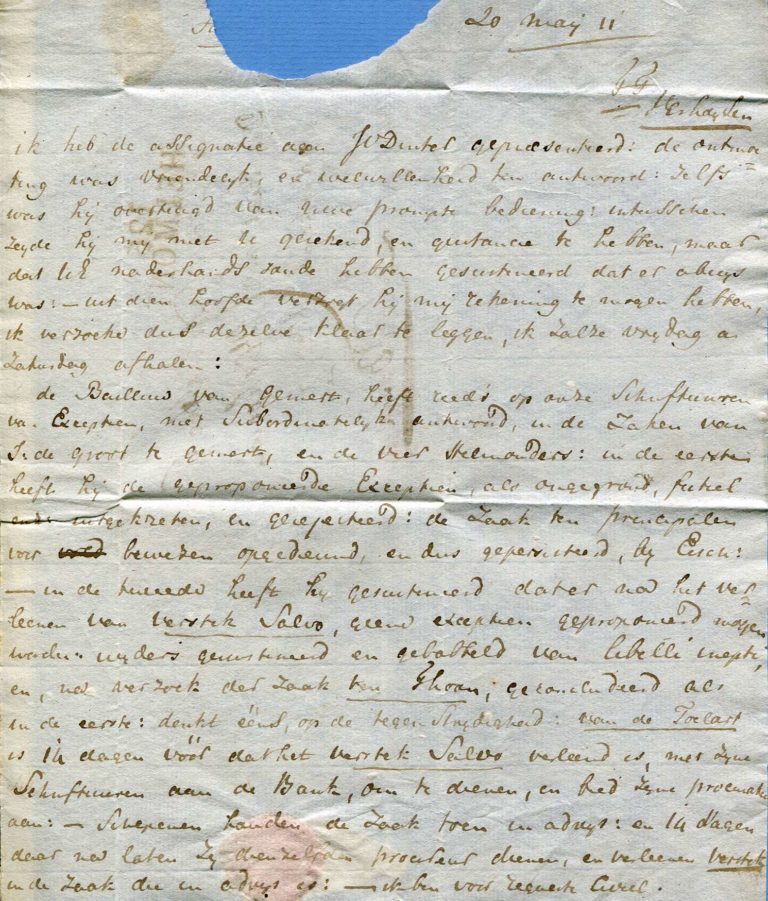 20 maij 11
Verhaijen
ik heb de assignatie aan JV Dintel gepresenteerd: de ontmoe=
ting was vriendelyk, en welwillenheid ten antwoord: zelfs
was hij overtuigd van uwe prompte bediening: intusschen
zeyde hij mij met U gerekend, en quitancie te hebben, maar
dat UE naderhands zoude hebben gesustineerd dat er abuys
was: – uit dien hoofde verzogt hij mij rekening te mogen hebben,
ik verzoeke dus dezelve klaar te leggen, ik zal ze vrydag a
Zaturdag afhalen:
de Bailluw van gemert, heeft reeds op onze Schriftuuren
van Exceptien, met Subordinatelyk antwoord, in de Zaken van
J. de groot te gemert, en de vier Helmonders: in de eerste
heeft hij de geproponeerde Exceptien, als ongegrond, futiel
uitgekreten, en gerejecteerd: de Zaak ten principalen
voor bewezen opgediend, en dus gepersisteerd, by Eisch:
– in de tweede heeft hy gesustineerd dat er na het ver=
leenen van verstek Salvo, geene exceptien geproponeerd mogen
worden: wyders gesustineerd en gebabbeld van libelli inepti,
en, na verzoek der zaak ten Thoon, geconcludeerd als
in de eerste: denkt ééns, op de tegenstrydigheid: van de Toelart
is 14 dagen vóór dat het verstek Salvo verleend is, met zyne
Schriftuuren aan de Bank, om te dienen, en bied zyne procuratie
aan: – Schepenen houden de Zaak toen in advys: en 14 dagen
daar na laten zy denzelfden procureur dienen, en verleenen verstek
in de Zaak die in advys is: – ik ben voor requeste Civiel.